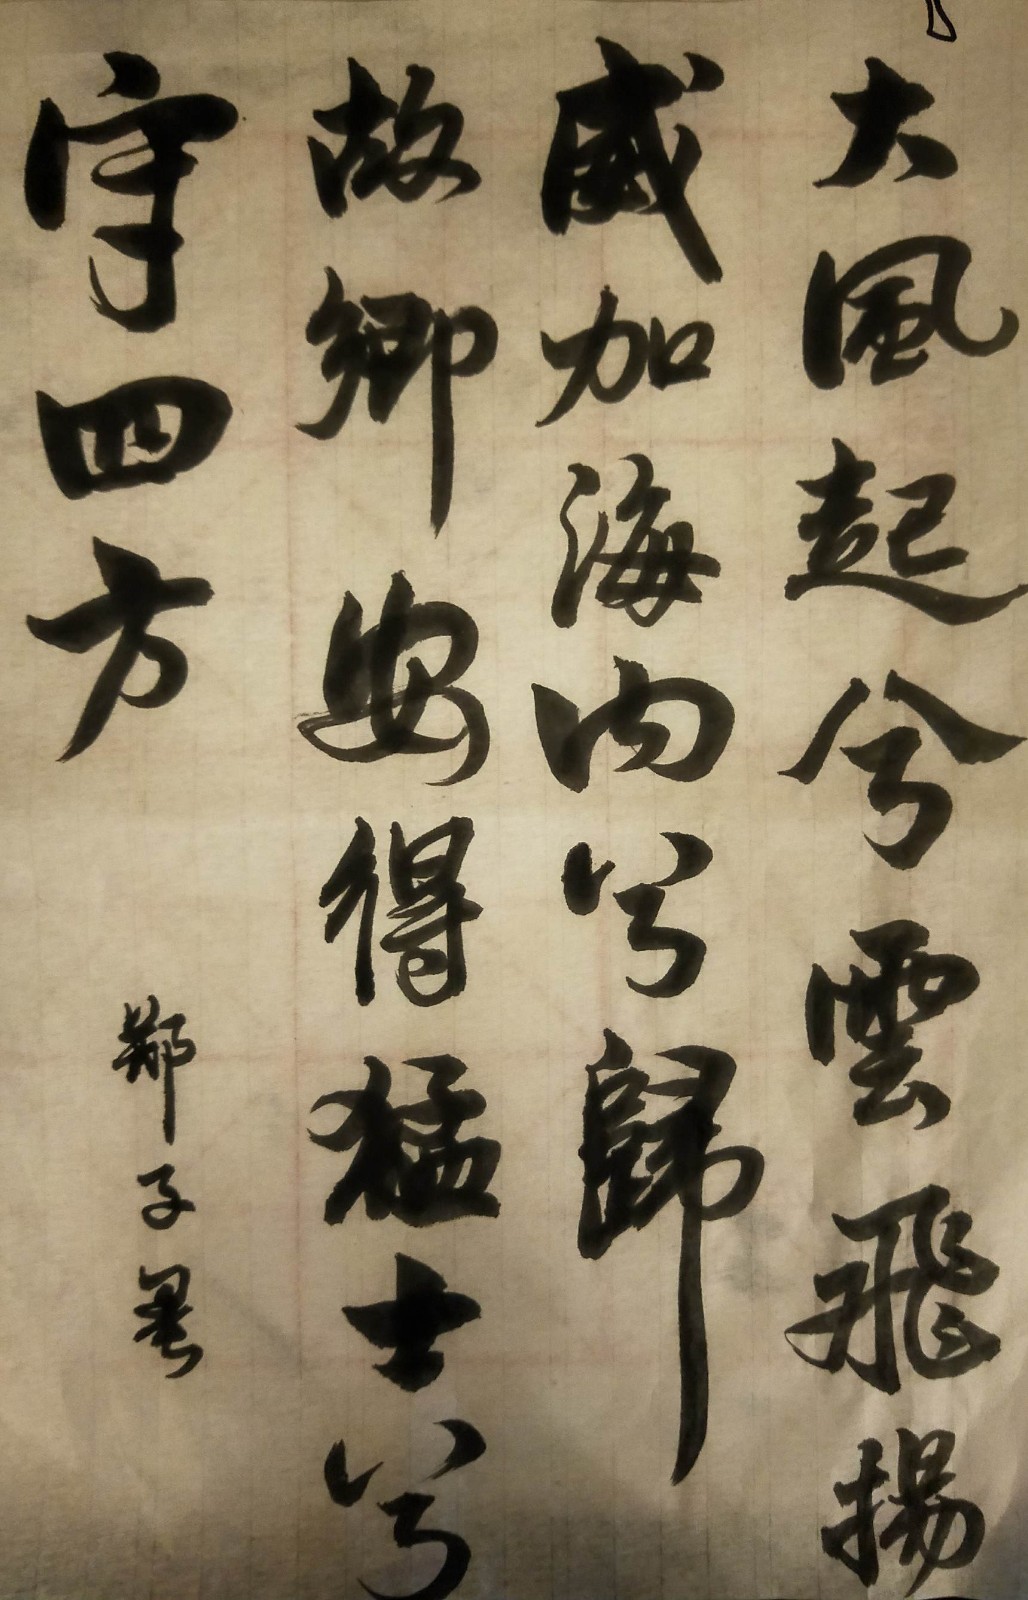 大風起兮雲飛揚
威加海内兮歸
故鄉安得猛士兮
守四方
鄭子